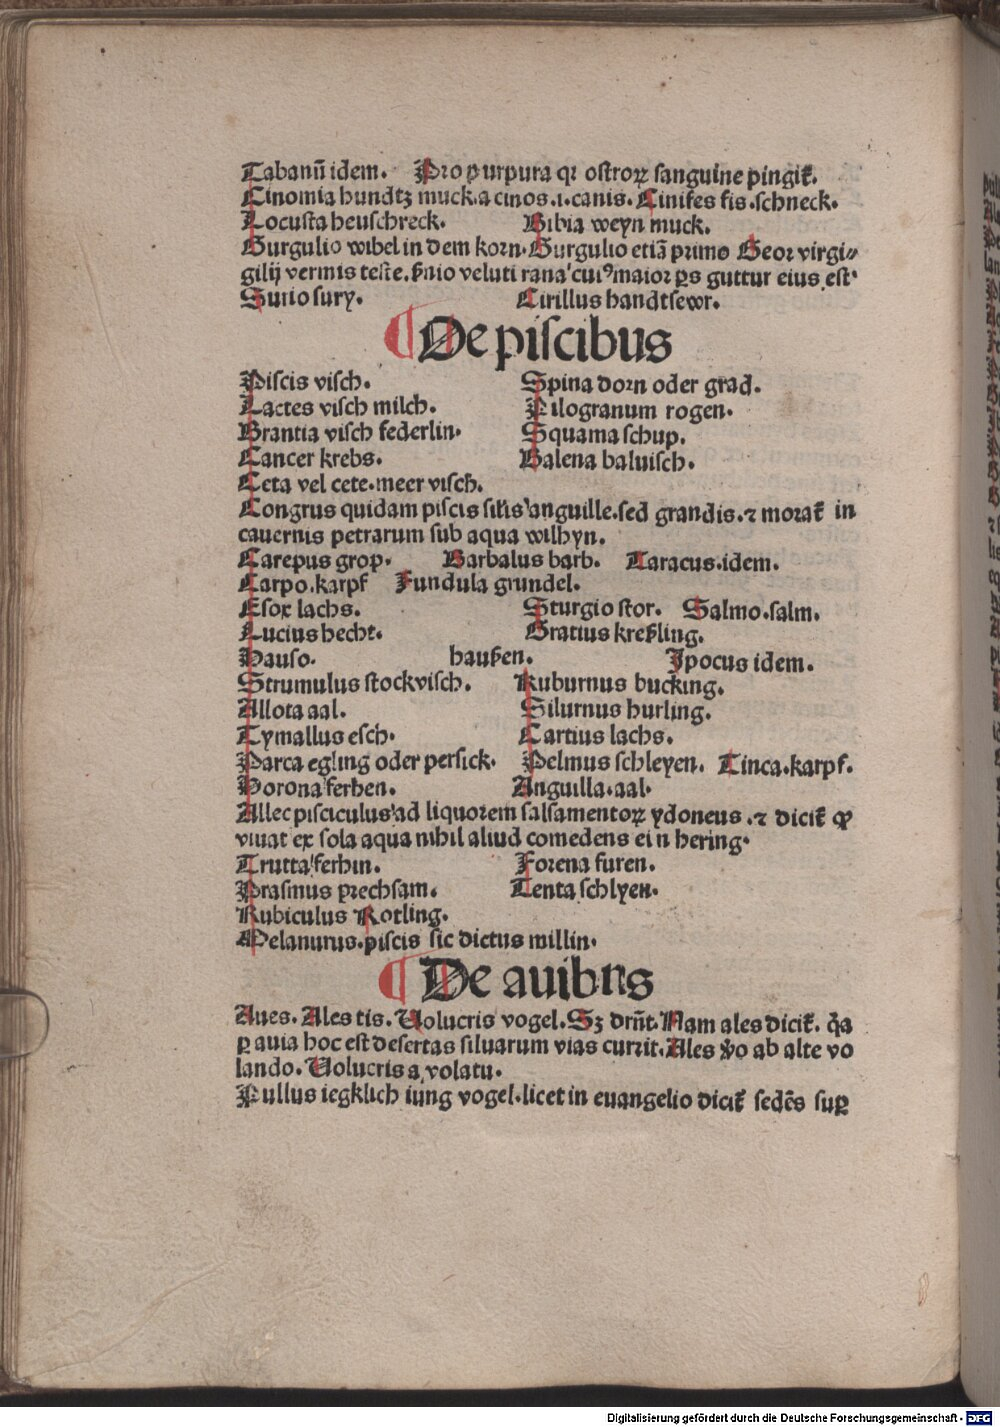 Tabanū idem. Pro purpura qꝛ ostroꝝ sanguine pingit᷑.
Cinomia hundtʒ muck.a cinos .i.canis. Cinifes fis .schneck.
Locusta heuschreck. Bibia weyn muck.
Gurgulio wibel in dem korn. Gurgulio etiā primo Geor virgi⸗
gilij vermis teste. veluti rana cuiꝰ maior ꝑs guttur eius est.
Suito sury. Cirillus handtsewr.
De piscibus
Piscis visch. Spina dorn oder grad.
Lactes visch milch. Pilogranum rogen.
Brantia visch federlin. Squama schup.
Cancer krebs. Balena baluisch.
Ceta vel cete.meer visch.
Congrus quidam piscis sil̄is anguille.sed grandis.⁊ morat᷑ in
cauernis petrarum sub aqua wilhyn.
Carepus grop. Barbalus barb. Taracus.idem.
Carpo.karpf Fundula grundel.
Esox lachs. Sturgio stor. Salmo.salm.
Lucius hecht. Gratius kreßling.
Hauso. haußen. Ipocus idem.
Strumulus stockvisch. Ruburnus bucking.
Allota aal. Silurnus hurling.
Tymallus esch. Cartius lachs.
Parca egling oder persick. Pelmus schleyen. Tinca.karpf.
Porona ferhen. Anguilla.aal.
Allec pisciculus ad liquorem salsamentoꝝ ydoneus .⁊ dicit᷑ ꝙ
viuat ex sola aqua nihil aliud comedens ein hering.
Trutta ferhin. Forena furen.
Prasmus prechsam. Tenta schlyen.
Rubiculus Rotling.
Melanurus.piscis sic dictus millin.
De auibns
Aues. Ales tis. Uolucris vogel. Sʒ drn̄t. Nam ales dicit᷑. q̄a
ꝑ auia hoc est desertas siluarum vias currit. Ales ꝟo ab alte vo
lando. Uolucris a volatu.
Pullus iegklich iung vogel.licet in euangelio dicit᷑ sedēs suꝑ
Digitalisierung gefördert durch die Deutsche Forschungsgemeinschaft - DFG